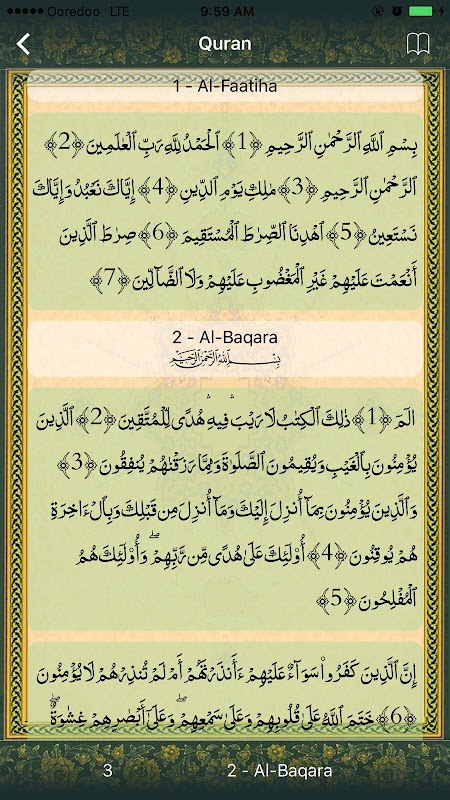 ●●●●● Ooredoo LTE 9:59 AM
Quran
1 - Al-Faatiha
بِسْمِ اللَّهِ الرَّحْمَٰنِ الرَّحِيمِ ﴿1﴾ الْحَمْدُ لِلَّهِ رَبِّ الْعَٰلَمِينَ ﴿2﴾
الرَّحْمَٰنِ الرَّحِيمِ ﴿3﴾ مَٰلِكِ يَوْمِ الدِّينِ ﴿4﴾ إِيَّاكَ نَعْبُدُ وَإِيَّاكَ
نَسْتَعِينُ ﴿5﴾ اهْدِنَا الصِّرَٰطَ الْمُسْتَقِيمَ ﴿6﴾ صِرَٰطَ الَّذِينَ
أَنْعَمْتَ عَلَيْهِمْ غَيْرِ الْمَغْضُوبِ عَلَيْهِمْ وَلَا الضَّآلِّينَ ﴿7﴾
2 - Al-Baqara
بِسْمِ اللَّهِ الرَّحْمَٰنِ الرَّحِيمِ
الٓمٓ ﴿1﴾ ذَٰلِكَ الْكِتَٰبُ لَا رَيْبَ ۛ فِيهِ ۛ هُدًى لِّلْمُتَّقِينَ ﴿2﴾ الَّذِينَ
يُؤْمِنُونَ بِالْغَيْبِ وَيُقِيمُونَ الصَّلَوٰةَ وَمِمَّا رَزَقْنَٰهُمْ يُنفِقُونَ ﴿3﴾
وَالَّذِينَ يُؤْمِنُونَ بِمَآ أُنزِلَ إِلَيْكَ وَمَآ أُنزِلَ مِن قَبْلِكَ وَبِالْءَاخِرَةِ
هُمْ يُوقِنُونَ ﴿4﴾ أُولَٰٓئِكَ عَلَىٰ هُدًى مِّن رَّبِّهِمْ ۖ وَأُولَٰٓئِكَ هُمُ
الْمُفْلِحُونَ ﴿5﴾
إِنَّ الَّذِينَ كَفَرُوا۟ سَوَآءٌ عَلَيْهِمْ ءَأَنذَرْتَهُمْ أَمْ لَمْ تُنذِرْهُمْ لَا يُؤْمِنُونَ
﴿6﴾ خَتَمَ اللَّهُ عَلَىٰ قُلُوبِهِمْ وَعَلَىٰ سَمْعِهِمْ ۖ وَعَلَىٰٓ أَبْصَٰرِهِمْ غِشَٰوَةٌ ۖ
3 2 - Al-Baqara